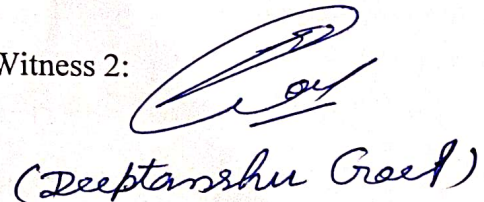 Witness 2:
(Deeptanshu Goel)